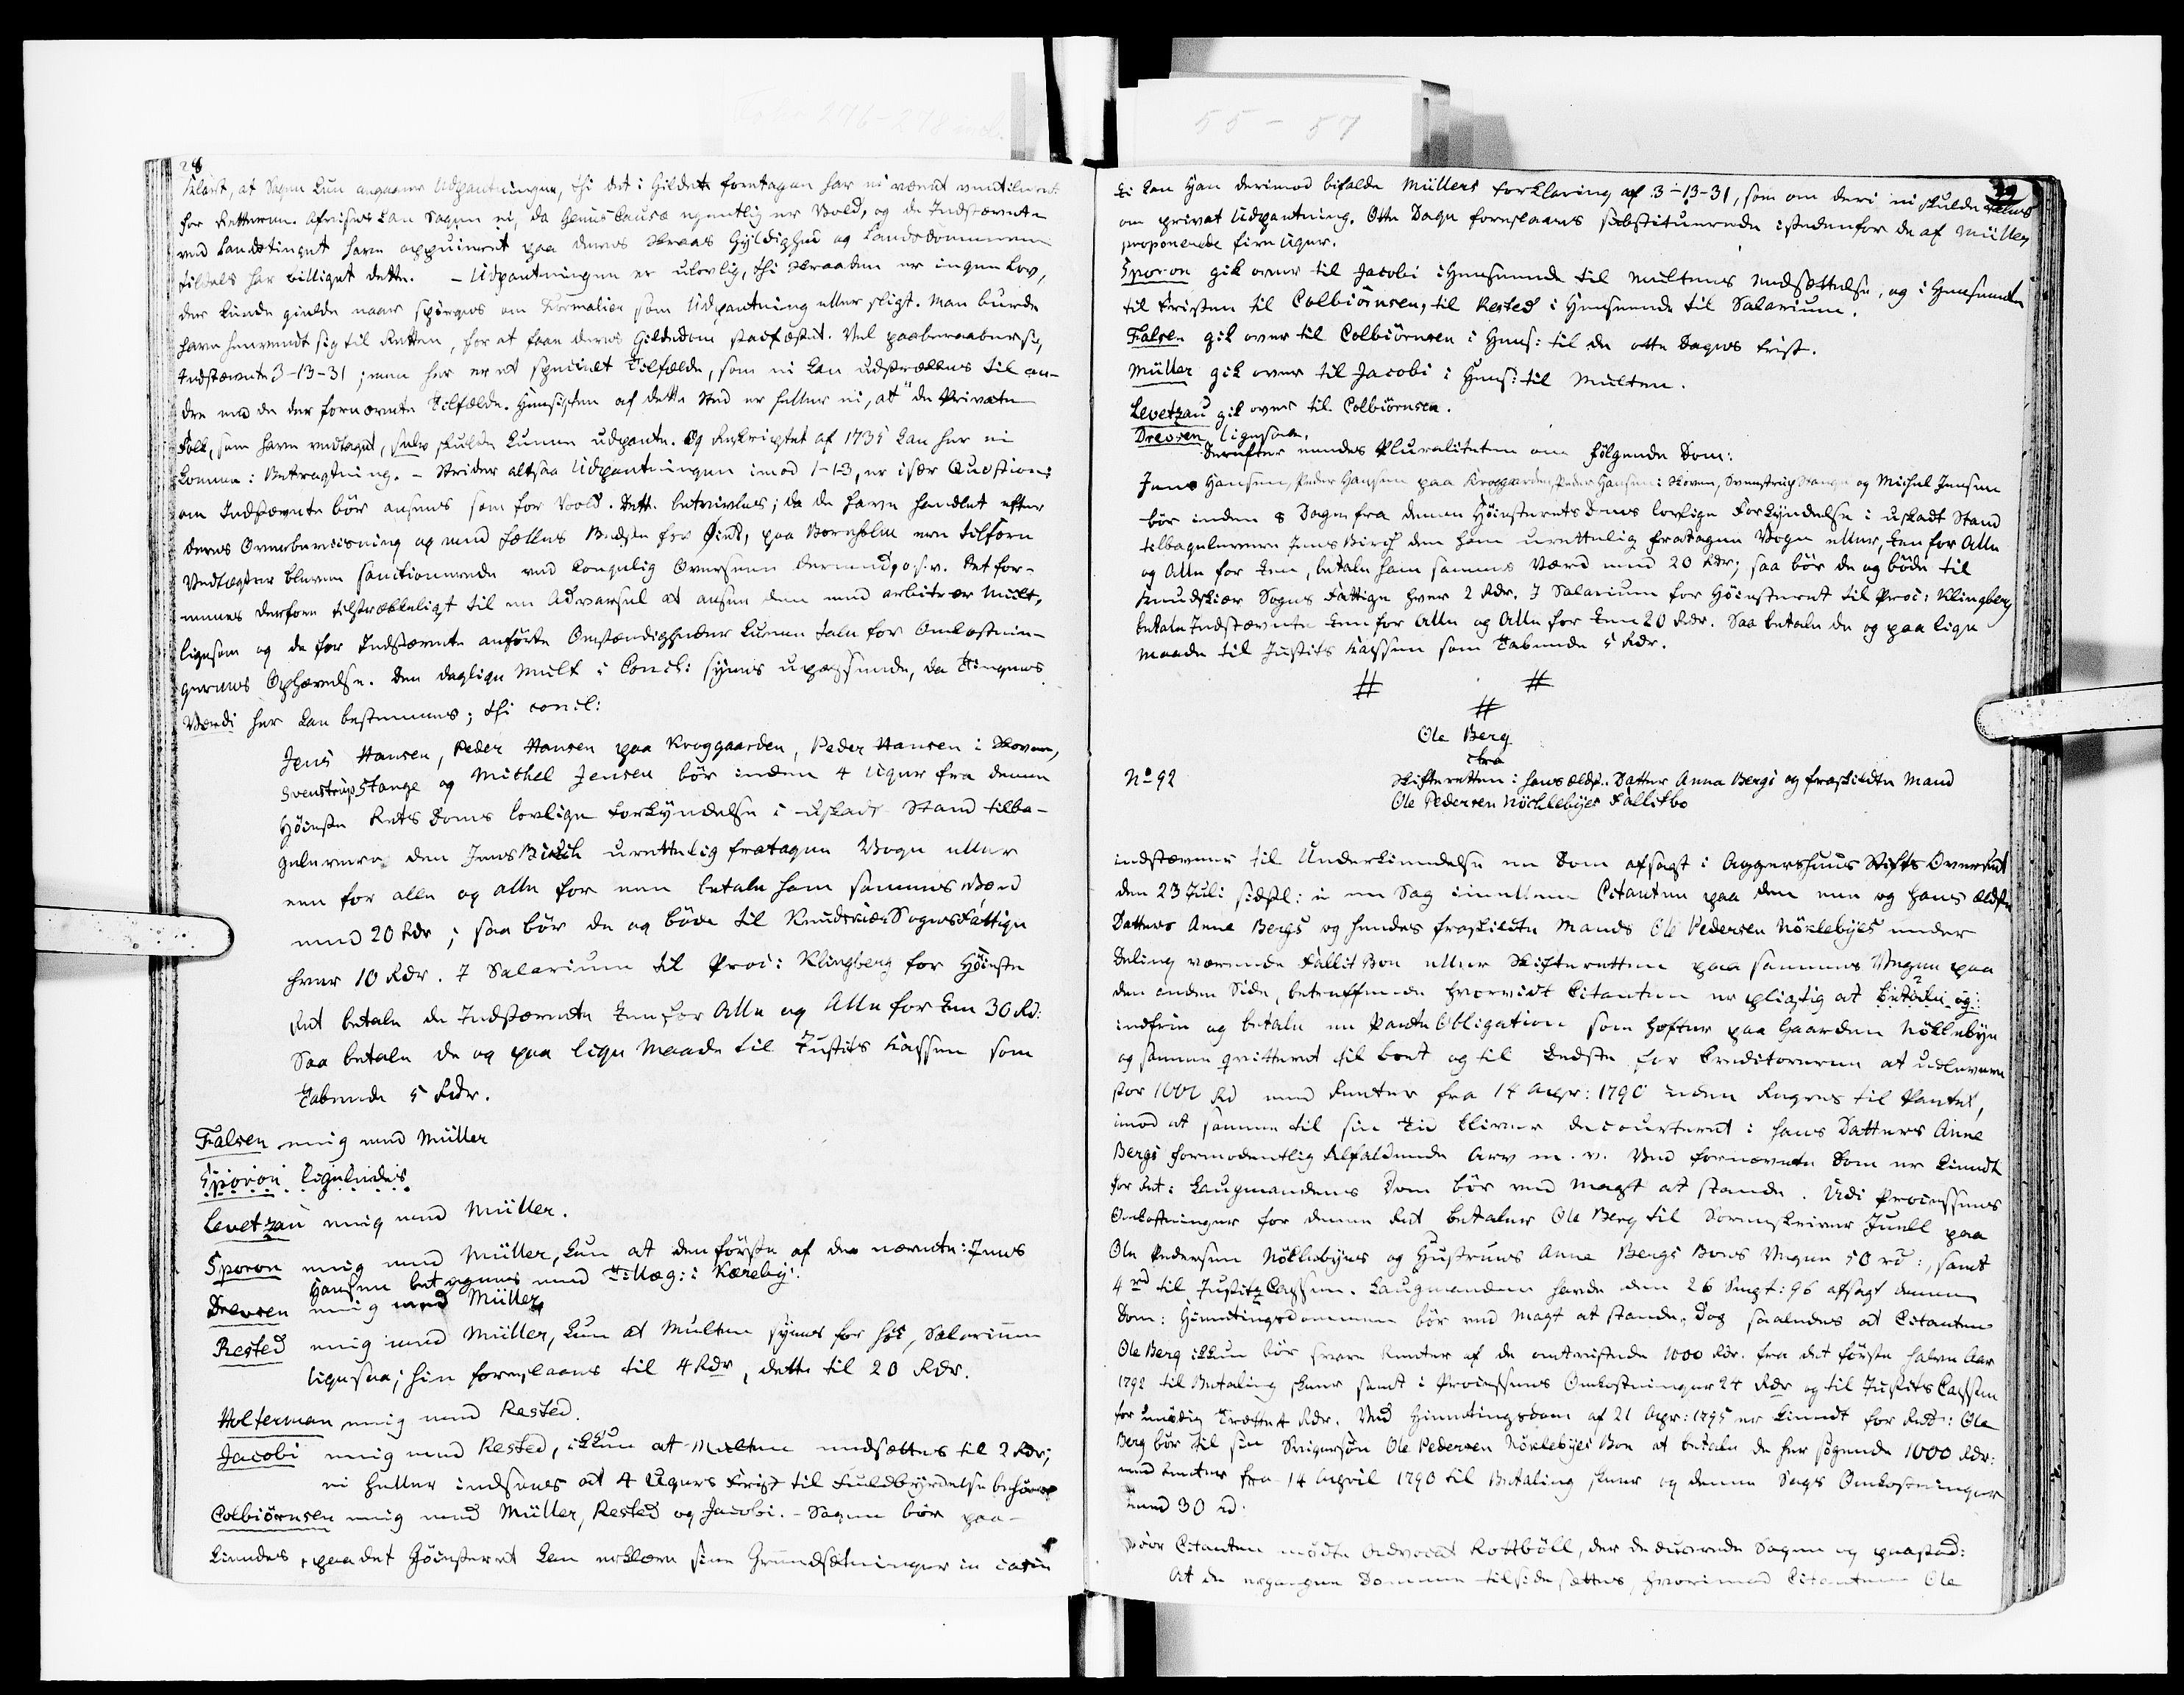 28
klart, at Sagen kun angaaer Udpantningen, thi det i Gildet foretagen har ei været ventileret
for Retterne. Afvises kan Sagen ei, da Genus Causæ egentlig er Vold, og de Indstævnte
ved Landstinget have acqviesceret paa deres Skraas Gyldighed og Landsdommeren
tildels har billiget dette. – Udpantningen er ulovlig, thi Skraaden er ingen Lov,
der kunde gielde naar spörges om Formalier som Udpantning eller sligt. Man burde
have henvendt sig til Retten, for at faae deres Gildedom stadfæstet. Vel paaberaaber sig
Indstævnte 3-13-31; men her er et specielt Tilfælde, som ei kan udstrækkes til an-
dre end de der fornævnte Tilfælde. Hensigten af dette Sted er heller ei, at de Private
Folk, som have vedtaget, selv skulde kunne udpante. Og Rescriptet af 1735 kan her ei
komme i Betragtning. – Strider altsaa Udpantningen imod 1-13, er især Qvæstion:
om Indstævnte bör ansees som for Vold. Dette betvivles; da de have handlet efter
deres Overbeviisning og med fælles Bedste for Öiet, paa Bornholm ere tilforn
Vedtægter blevne sanctionerede ved kongelig Overseen dermed, o. s. v. Det for-
menes derfore tilstrækkeligt til en Advarsel at ansee dem med arbitrær Mulct,
ligesom og de for Indstævnte anförte Omstændigheder kunne tale for Omkostnin-
gernes Ophævelse. Den daglige Mulct i Concl: synes upassende, da Tingenes
Værdi her kan bestemmes; thi concl:
Jens Hansen, Peder Hansen paa Kroggaarden, Peder Hansen i Skoven,
Svenstrup Stange og Michel Jensen bör inden 4 Uger fra denne
Höieste Rets Doms lovlige Forkyndelse i uskadt Stand tilba-
gelevere den Jens Birch urettelig fratagne Vogn eller
een for alle og alle for een betale ham sammes Værd
med 20 Rdr; saa bör de og böde til Knudskiær Sogns Fattige
hver 10 Rdr. I Salarium til Proc: Klingberg for Höieste
Ret betale de Indstævnte Een for Alle og Alle for Een 30 Rd:
Saa betale de og paa lige Maade til Justits Kassen som
Tabende 5 Rdr.
Falsen enig med Müller
Sporon ligeledes
Levetzau enig med Müller.
Sporon enig med Müller, kun at den förste af de nævnte: Jens
Hansen betegnes med Tillæg: i Kæreby.
Drevsen enig med Müller
Rested enig med Müller, kun at Mulcten synes for höi, Salarium
ligesaa; hin foreslaaes til 4 Rdr, dette til 20 Rdr.
Holterman enig med Rested.
Jacobi enig med Rested, ikkun at Mulcten nedsættes til 2 Rdr;
ei heller indsees at 4 Ugers Frist til Fuldbyrdelse behöves
Colbiörnsen enig med Müller, Rested og Jacobi. – Sagen bör paa-
kiendes, paa det Höiesteret kan erklære sine Grundsætninger in casu
29
Ei kan Han derimod bifalde Müllers Forklaring af 3-13-31, som om deri ei skulde tales
om privat Udpantning. Otte Dage foreslaaes substituerede istedenfor de af Müller
proponerede fire Uger.
Sporon gik over til Jacobi i Henseende til Mulctens Nedsættelse, og i Henseende
til Fristen til Colbiörnsen, til Rested i Henseende til Salarium.
Falsen gik over til Colbiörnsen i Hens: til de otte Dages Frist.
Müller gik over til Jacobi i Hens: til Mulcten.
Levetzau gik over til Colbiörnsen.
Drevsen ligesaa.
Derefter eendes Pluraliteten om fölgende Dom:
Jens Hansen, Peder Hansen paa Kroggaarden, Peder Hansen i Skoven, Svenstrup Stange og Michel Jensen
bör inden 8 Dage fra denne Höiesterets Doms lovlige Forkyndelse i uskadt Stand
tilbagelevere Jens Birch den ham urettelig fratagne Vogn eller, Een for Alle
og Alle for Een, betale ham sammes Værd med 20 Rdr; saa bör de og böde til
Knudskiær Sogns Fattige hver 2 Rdr. I Salarium for Höiesteret til Proc: Klingberg
betale Indstævnte Een for Alle og Alle for Een 20 Rdr. Saa betale de og paa lige
Maade til Justits Kassen som Tabende 5 Rdr.
# #
#
Ole Berg
ctra
No 92
Skifteretten i hans ældste Datter Anna Bergs og fraskildte Mand
Ole Pedersen Nöcklebÿes Fallitbo
indstævner til Underkiendelse en Dom afsagt i Aggershuus Stifts Overret
den 23 Juli sidstl: i en Sag imellem Citanten paa den ene og hans ældste
Datters Anne Bergs og hendes fraskildte Mands Ole Pedersen Nöklebÿes under
Deling værende Fallit Boe eller Skifteretten paa sammes Vegne paa
den anden Side, betreffende hvorvidt Citanten er pligtig at betale og
indfrie og betale en Pante Obligation som hefter paa Gaarden Nöklebye
og samme qvitteret til boet og til Bedste for Creditorerne at udlevere
stor 1000 Rd med Renter fra 14 Apr: 1790 uden Regres til Pantet,
imod at samme til sin Tid bliver decourteret i hans Datters Anne
Bergs formodentlig tilfaldende Arv m. v. Ved fornævnte Dom er kiendt
for Ret: Laugmandens Dom bör ved Magt at stande. Udi Processens
Omkostninger for denne Ret betaler Ole Berg til Sorenskriver Juell paa
Ole Pedersen Nöklebyes og Hustrues Anne Bergs Boes Vegne 50 rd:, samt
4 rd til Justitz Cassen. Laugmanden havde den 26 Sept: 96 afsagt denne
Dom: Hiemtingsdommen bör ved Magt at stande, dog saaledes at Citanten
Ole Berg ikkun bör svare Renter af de omtvistede 1000 Rdr. fra det förste halve Aar
1792 til Betaling skeer samt i Processens Omkostninger 24 Rdr og til Justits Cassen
for unödig Trætte 4 Rdr. Ved Hiemtingsdom af 21 Apr: 1795 er kiendt for Ret: Ole
Berg bör til sin Svigersön Ole Pedersen Nöklebÿes Boe at betale de her sögende 1000 Rdr:
med Renter fra 14 April 1790 til Betaling skeer og denne Sags Omkostninger
med 30 rd:
For Citanten mödte Advocat Rottböll, der deducerede Sagen og paastod:
At de ergangne Domme tilside sættes, hvorimod Citanten Ole